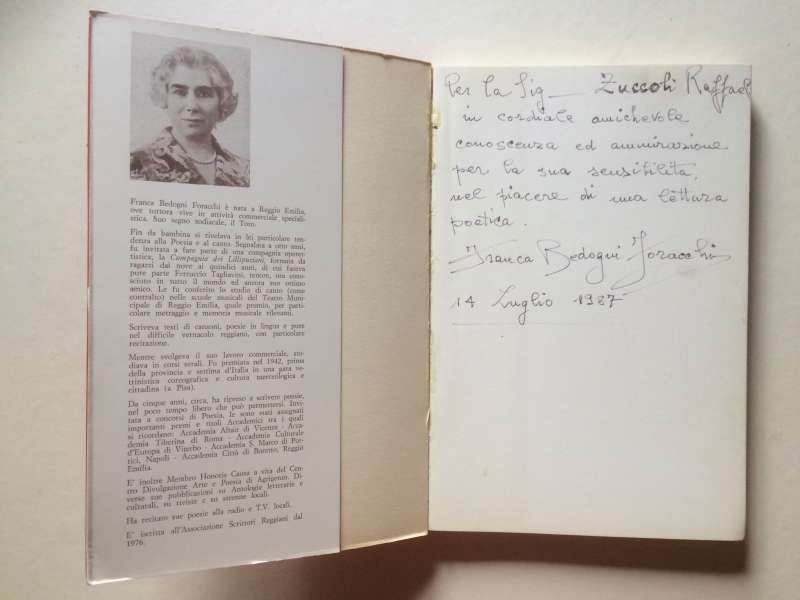 Franca Bedogni Foracchi è nata a Reggio Emilia,
ove tuttora vive in attività commerciale speciali-
stica. Suo segno zodiacale, il Toro.
Fin da bambina si rivelava in lei particolare ten-
denza alla Poesia e al canto. Segnalata a otto anni,
fu invitata a fare parte di una compagnia operet-
tistica; la Compagnia dei Lillipuziani, formata da
ragazzi dai nove ai quindici anni, di cui faceva
pure parte Ferruccio Tagliavini, tenore, ora cono-
sciuto in tutto il mondo ed ancora suo ottimo
amico. Le fu conferito lo studio di canto (come
contralto) nelle scuole musicali del Teatro Muni-
cipale di Reggio Emilia, quale premio, per parti-
colare metraggio e memoria musicale rilevanti.
Scriveva testi di canzoni, poesie in lingua e pure
nel difficile vernacolo reggiano, con particolare
recitazione.
Mentre svolgeva il suo lavoro commerciale, stu-
diava in corsi serali. Fu premiata nel 1942, prima
della provincia e settima d'Italia in una gara ve-
trinistica coreografica e cultura merceologica e
cittadina (a Pisa).
Da cinque anni, circa, ha ripreso a scrivere poesie,
nel poco tempo libero che può permettersi. Invi-
tata a concorsi di Poesia, le sono stati assegnati
importanti premi e titoli Accademici tra i quali
si ricordano: Accademia Altair di Vicenza - Acca-
demia Tiberina di Roma - Accademia Culturale
d'Europa di Viterbo - Accademia S. Marco di Por-
tici, Napoli - Accademia Città di Boretto, Reggio
Emilia.
E' inoltre Membro Honoris Causa a vita del Cen-
tro Divulgazione Arte e Poesia di Agrigento. Di-
verse sue pubblicazioni su Antologie letterarie e
culturali, su riviste e su strenne locali.
Ha recitato sue poesie alla radio e T.V. locali.
E' iscritta all'Associazione Scrittori Reggiani dal
1976.
Per la Sig— Zuccoli Raffael
in cordiale amichevole
conoscenza ed ammirazione
per la sua sensibilità,
nel piacere di una lettura
poetica.
Franca Bedogni Foracchi
14 Luglio 1987